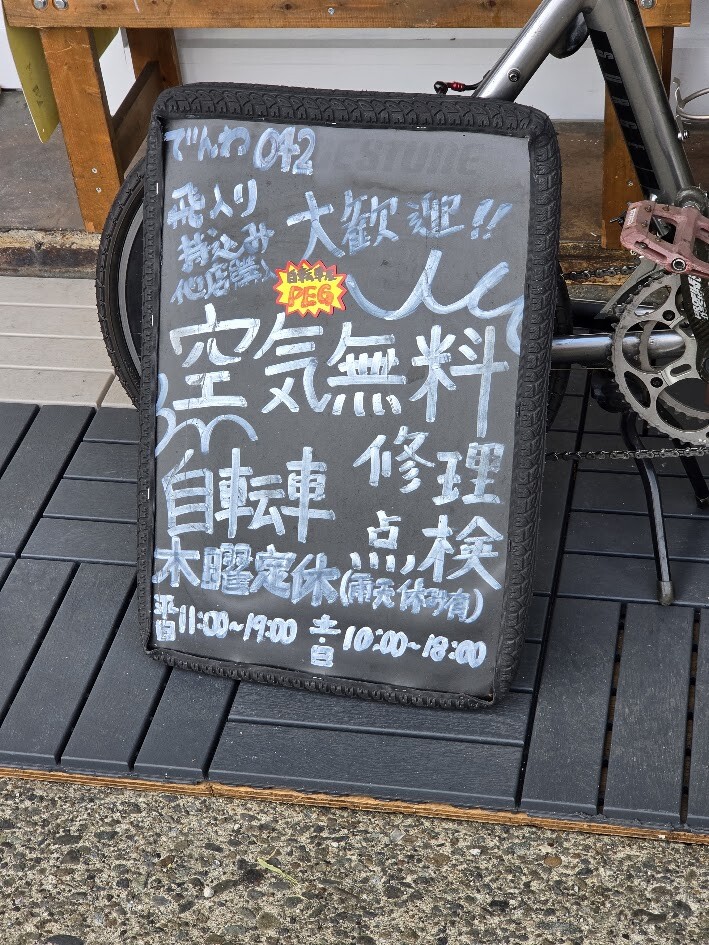 でんわ 042
飛入り
持込み
他店購入
大歓迎!!
自転車屋
PEG
空気無料
自転車
修理
点検
木曜定休(雨天休み有)
平日11:00~19:00 土・日10:00~18:00